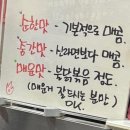 순한맛 - 기본적으로 매콤.
중간맛 - 신라면보다 매콤.
매운맛 - 불닭볶음 정도.
(매운거 잘드시는 분만)